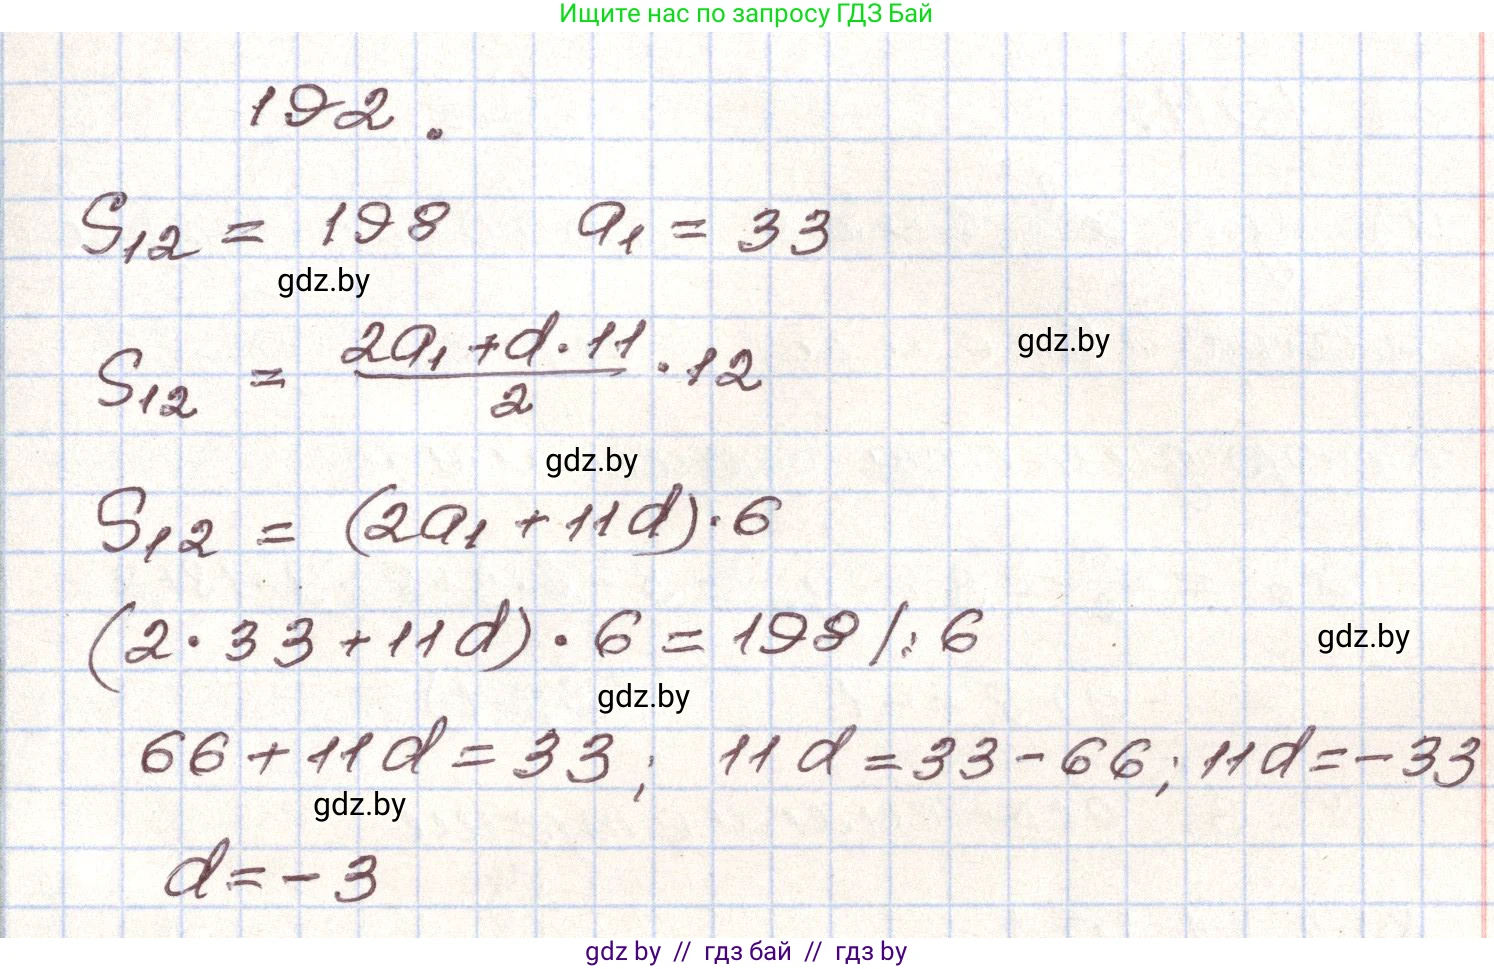 Ищите нас по запросу ГДЗ Бай
192.
S₁₂ = 198 a₁ = 33
gdz.by
gdz.by
S₁₂ = (2a₁ + d · 11)/2 · 12
gdz.by
S₁₂ = (2a₁ + 11d) · 6
(2 · 33 + 11d) · 6 = 198 /: 6
gdz.by
gdz.by
66 + 11d = 33; 11d = 33 - 66; 11d = -33
gdz.by
d = -3
gdz.by // гдз бай // гдз by